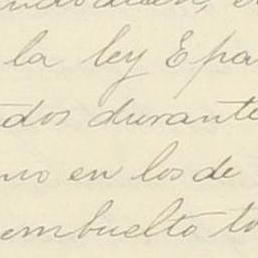 la ley Espa
dos durante
no en los de
embuelto to